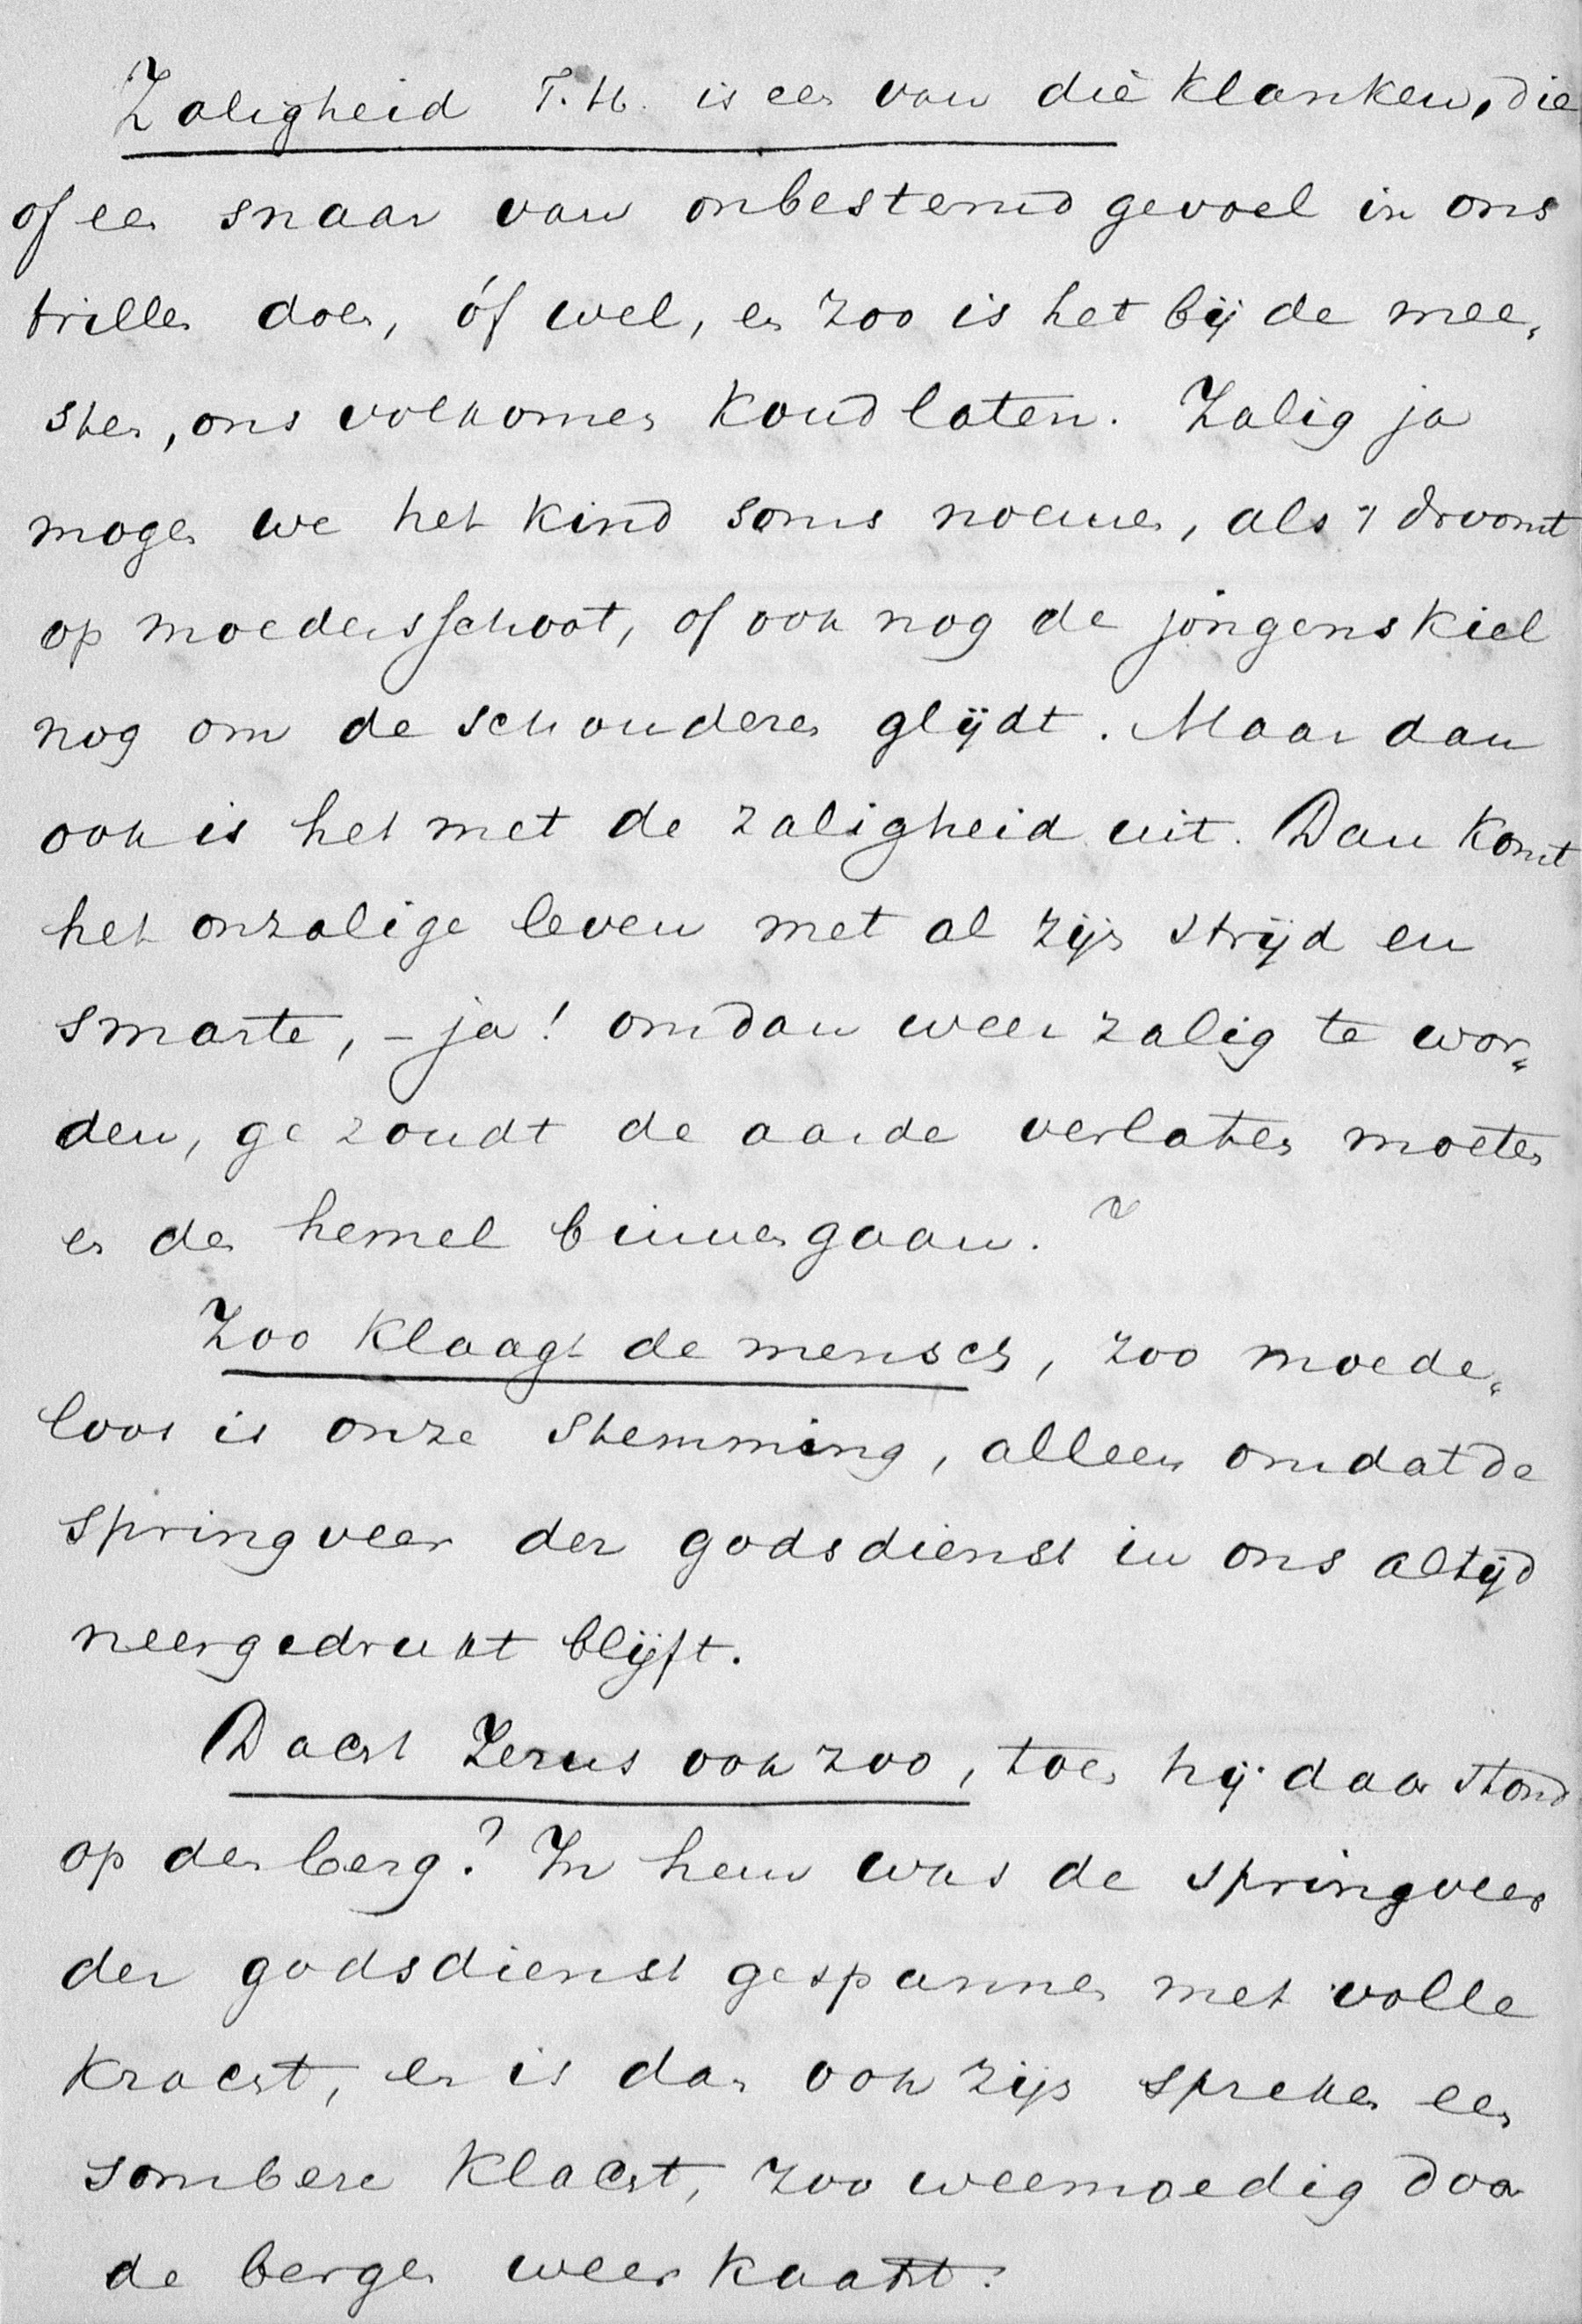 Zaligheid T.H. is een van die klanken, die
of een snaar van onbestemd gevoel in ons
trillen doen, óf wel, en zoo is het bij de mee„
sten, ons volkomen koud laten. Zalig ja
mogen we het kind soms noemen, als 't droomt
op moedersschoot, of ook nog de jongenskiel
nog om de schouderen glijdt. Maar dan
ook is het met de zaligheid uit. Dan komt
het onzalige leven met al zijn strijd en
smarte, – ja! om dan weer zalig te wor„
den, ge zoudt de aarde verlaten moeten
en den hemel binnengaan.?
Zoo klaagt de mensch, zoo moede„
loos is onze stemming, alleen omdat de
springveer der godsdienst in ons altijd
neergedrukt blijft.
Dacht Jezus ook zoo, toen hij daar stond
op den berg? In hem was de springveer
der godsdienst gespannen met volle
kracht, en is dan ook zijn spreken een
sombere klacht, zoo weemoedig door
de bergen weerkaatst.